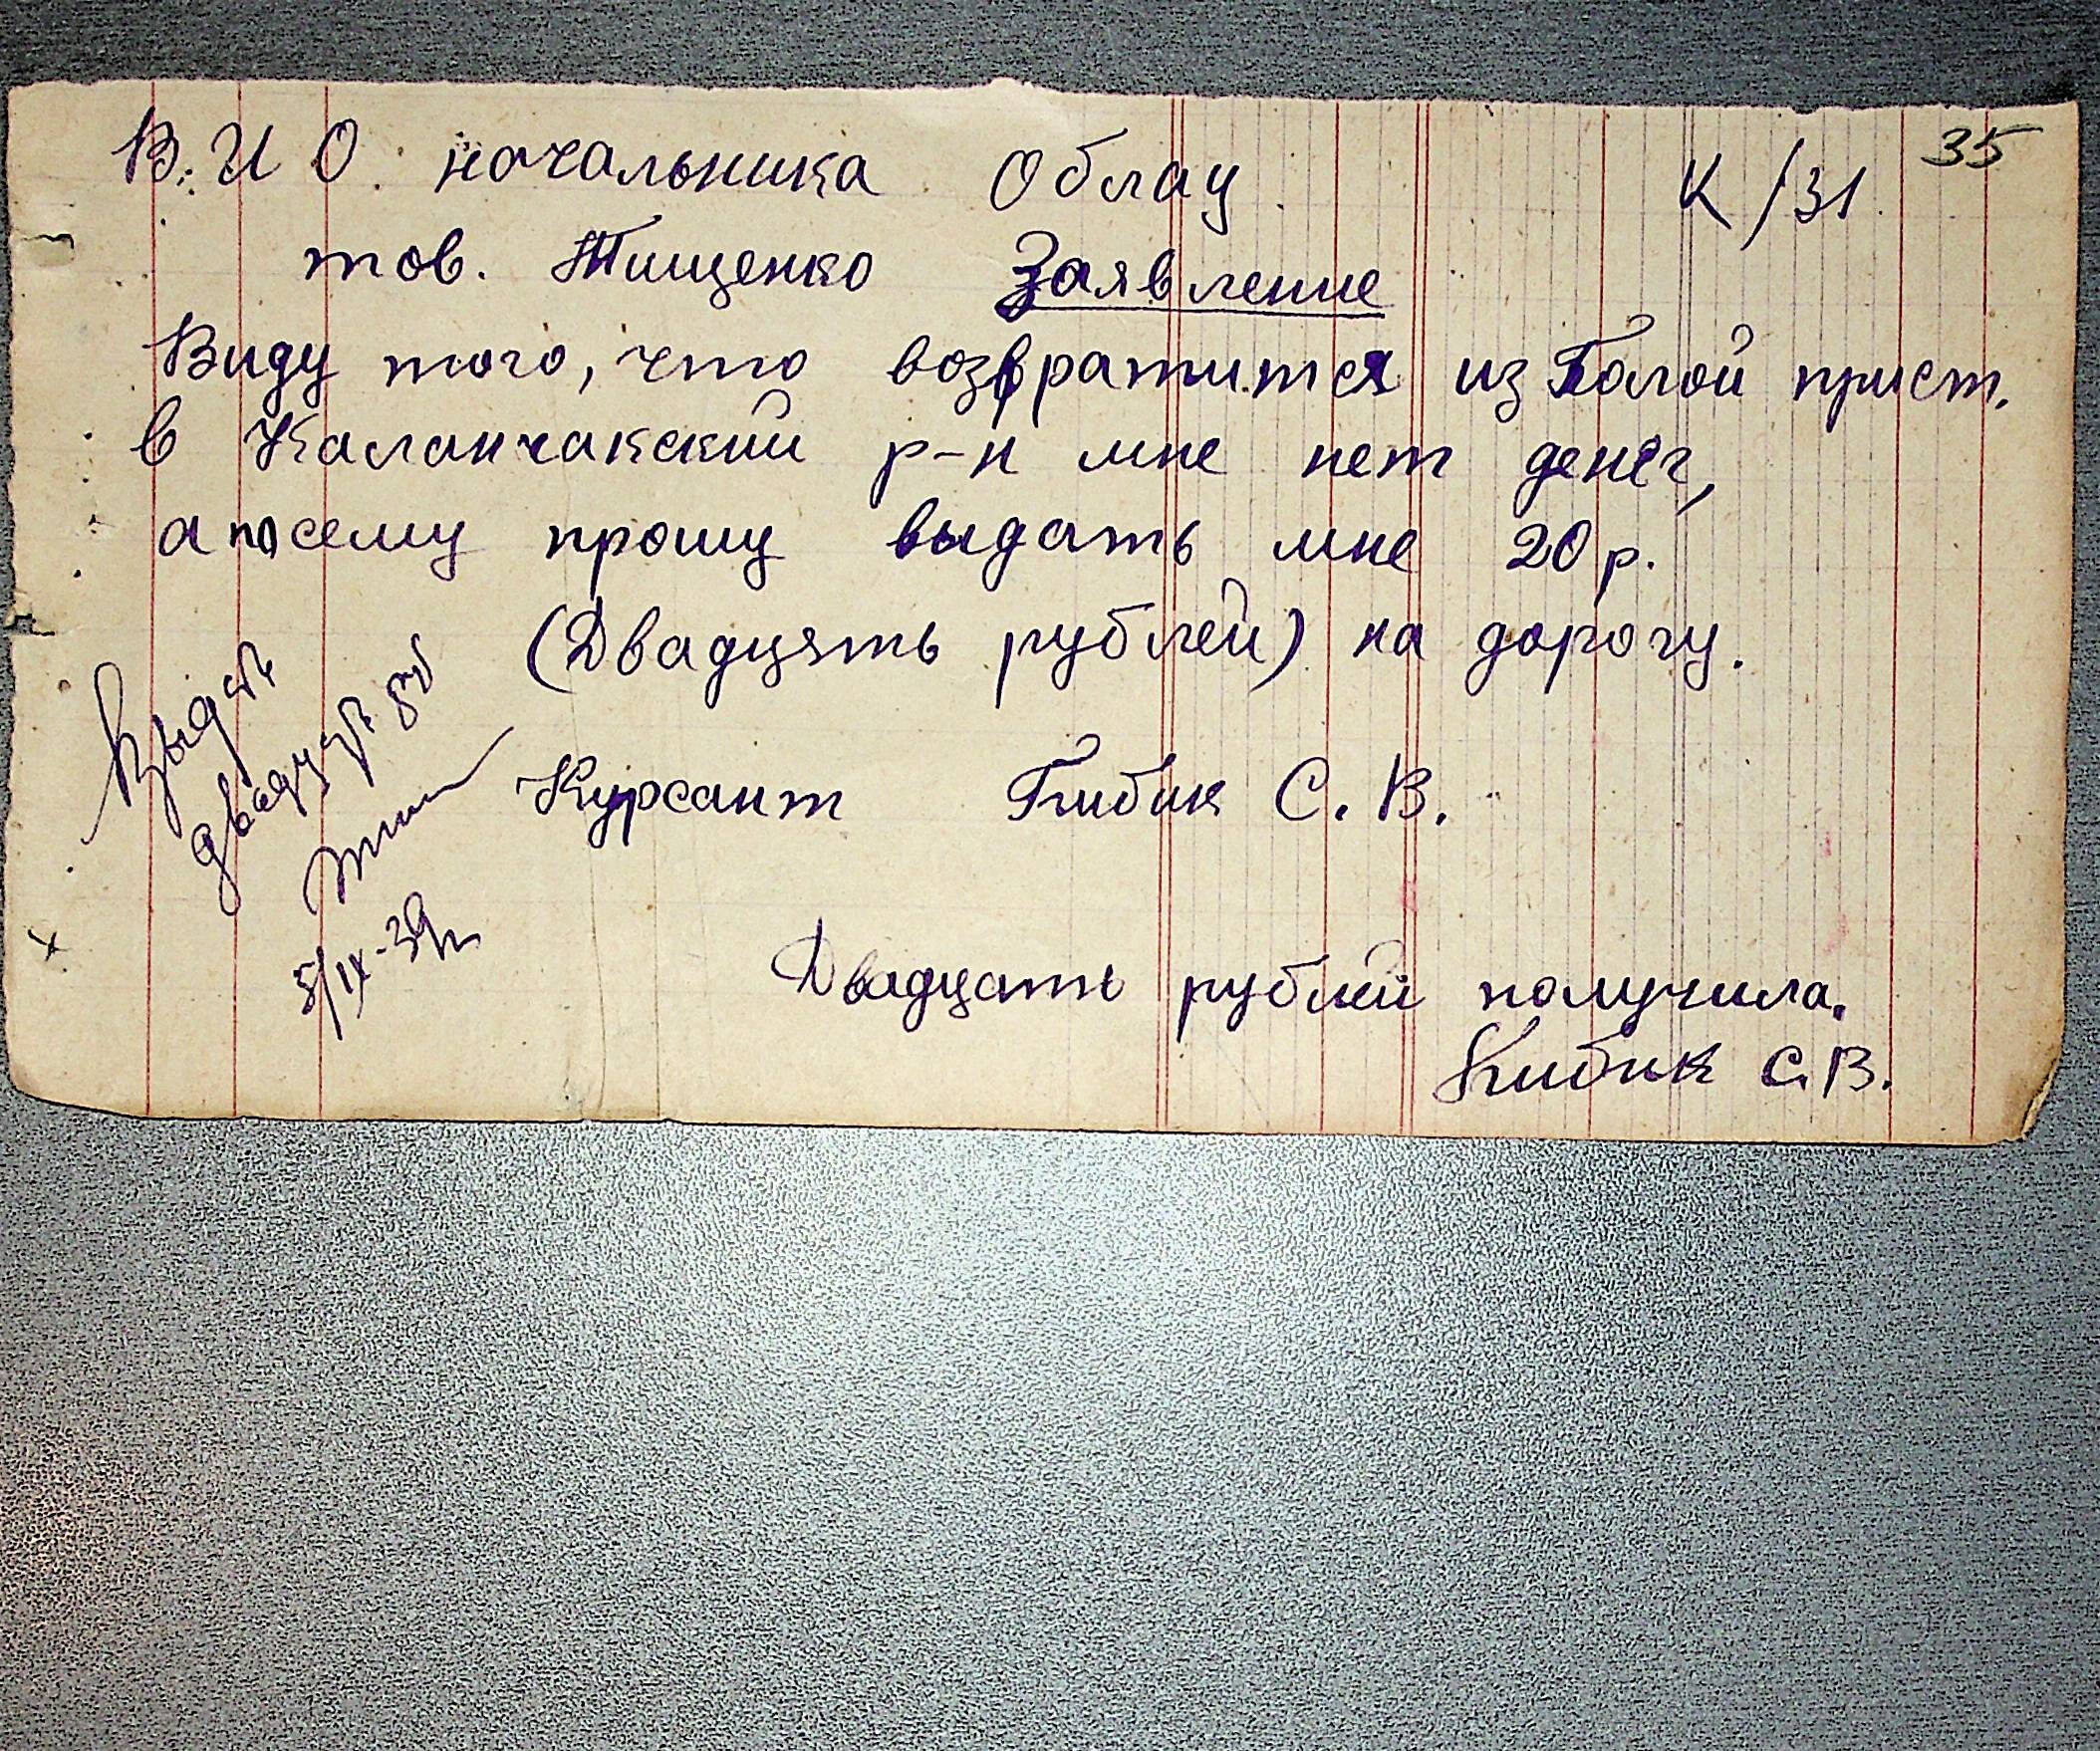 35
В. И О. начальника Облау К/31
тов. Тищенко Заявление
Виду того, что возвратится из Голой прист.
в Каланчакский р-н мне нет денег,
а посему прошу выдать мне 20 р.
(Двадцять рублей) на дорогу.
Выдать
двадцать руб
5/IX-39г
Курсант Кибик С. В.
Двадцать рублей получила.
Кибик С.В.